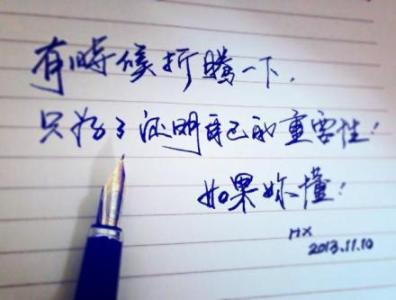 有時候折騰一下，
只为了证明自己的重要性！
如果妳懂！
MX
2013.11.10